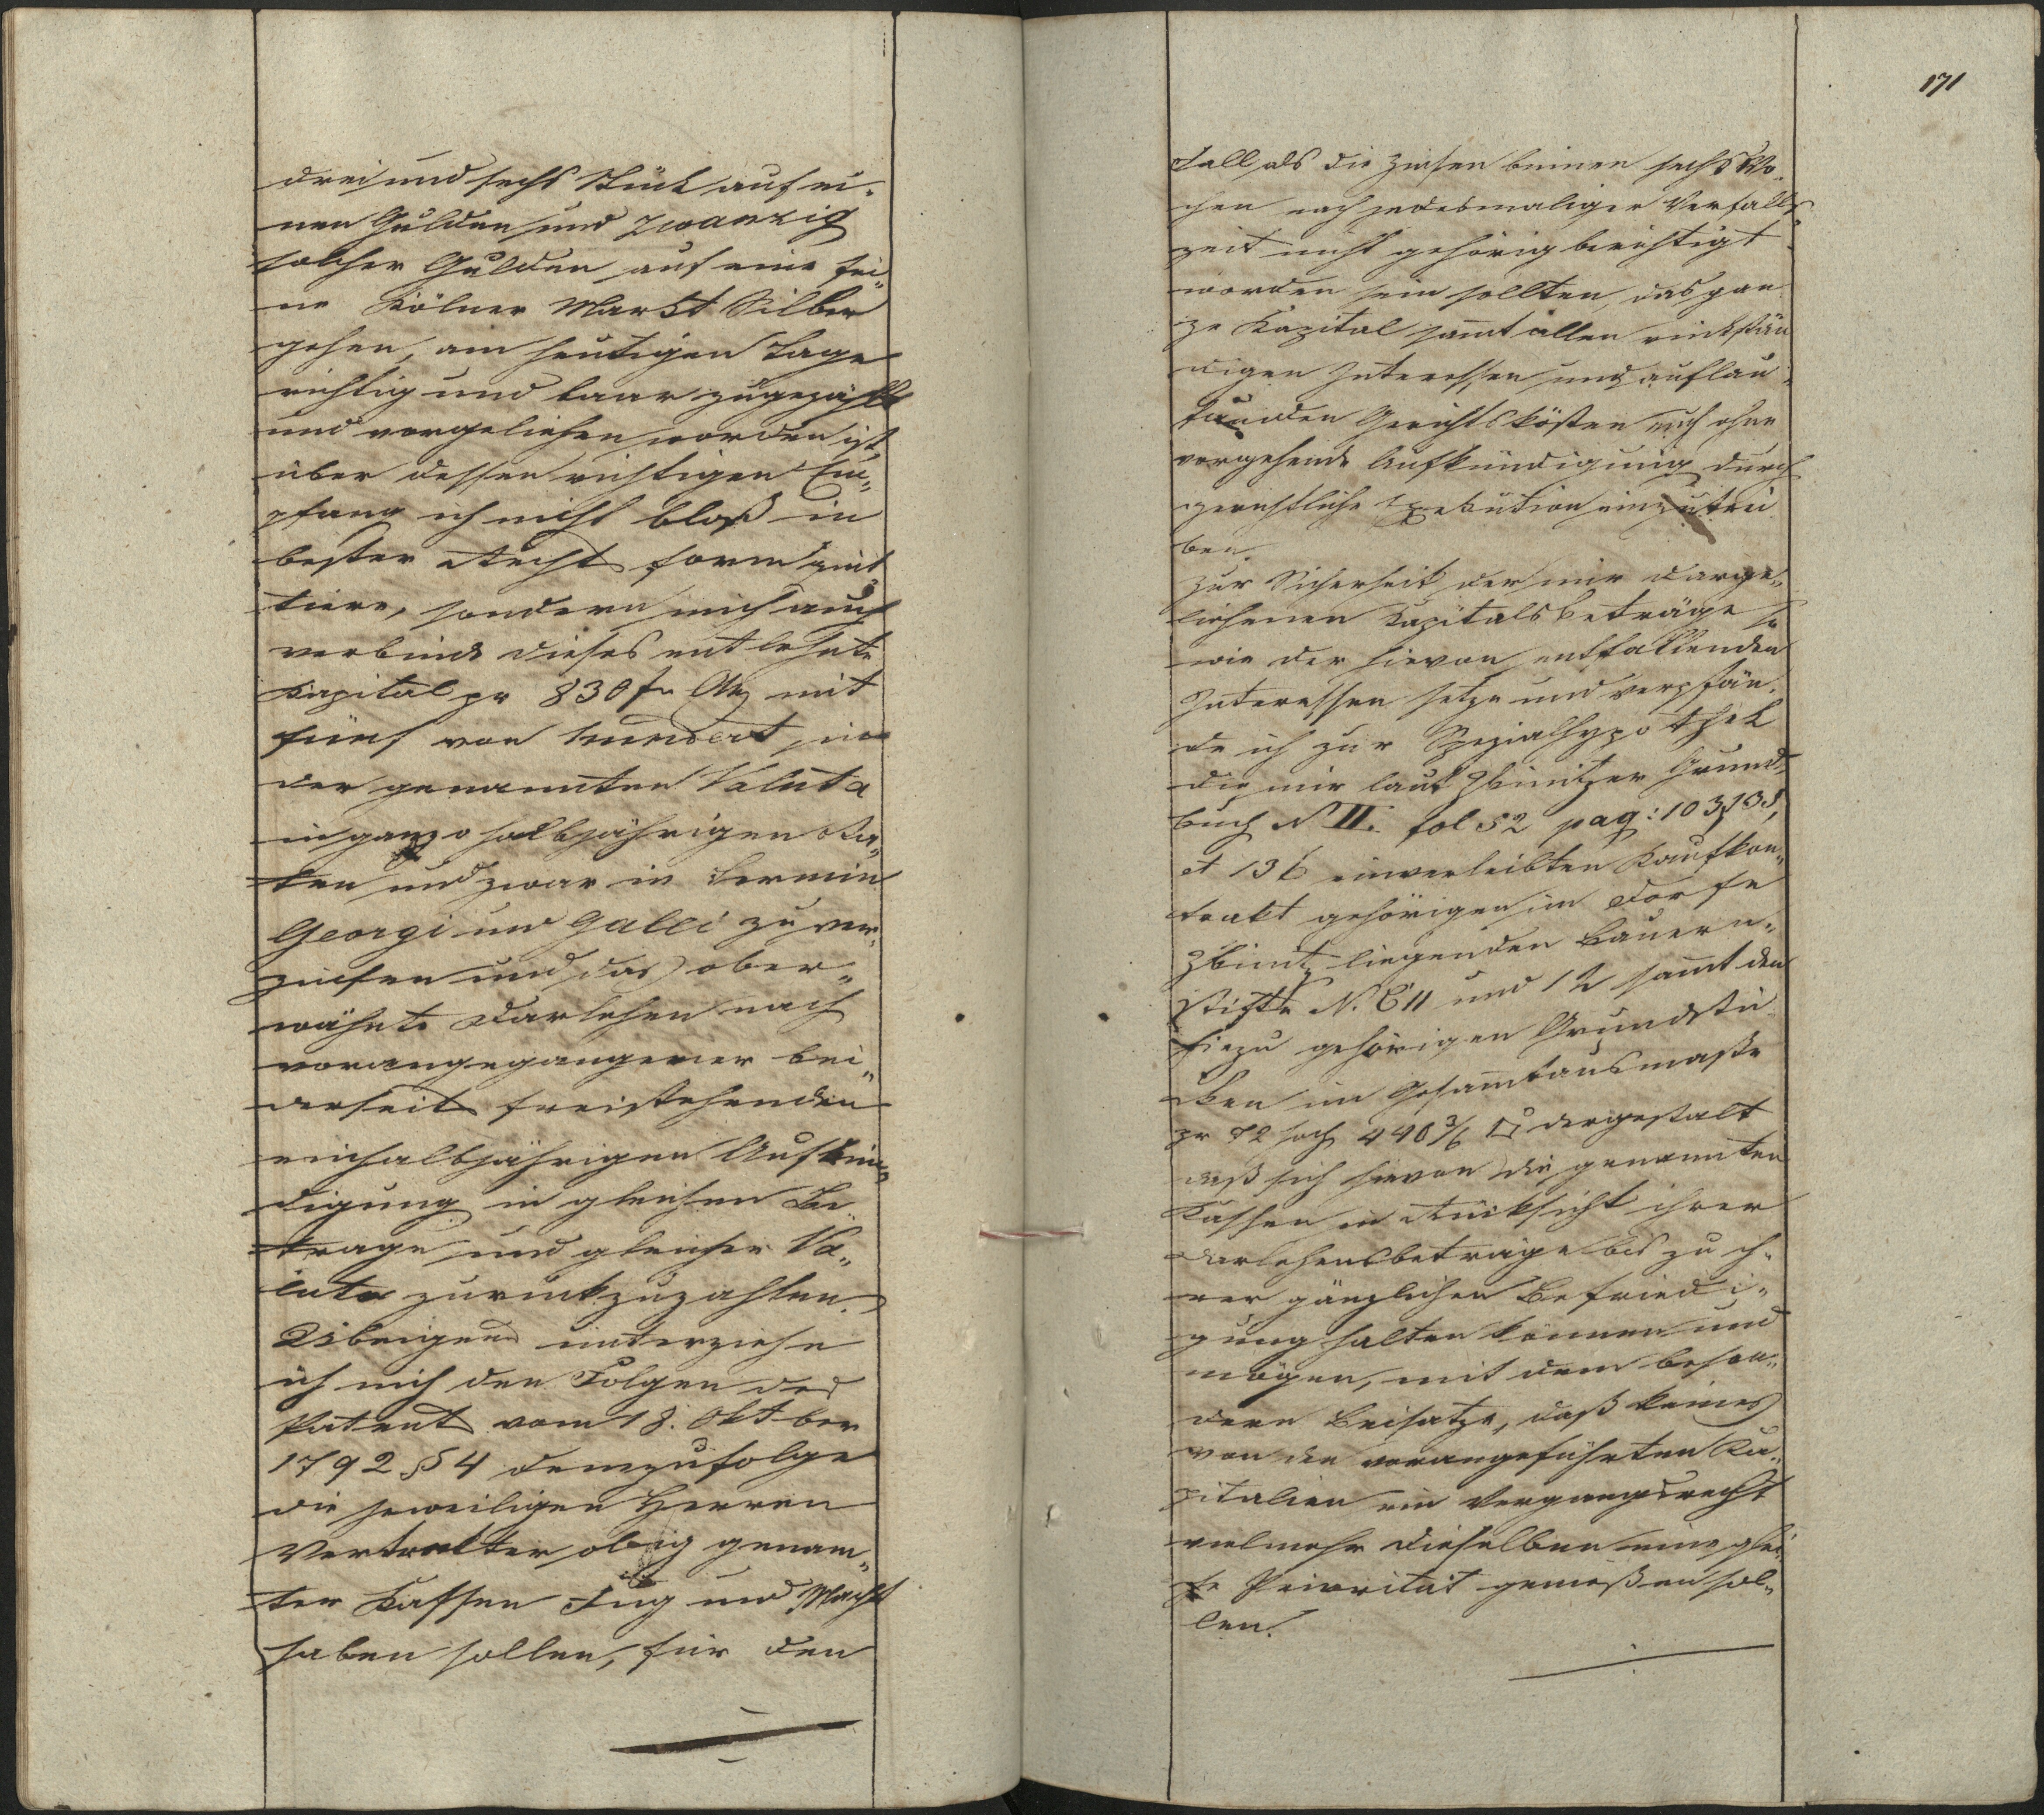 drei und sechs Stück auf ei„
nen Gulden und zwanzig
solcher Gulden auf eine fei„
ne Kölner Markt Silber
gehen, am heutigen Tage
richtig und baar zugezählt
und vorgeliehen worden ist,
über dessen richtigen Em„
pfang ich nicht bloß in
bester Rechts form quit„
tiere, sondern mich auch
verbinde dieses entlehnte
Kapital pr 830 f mit
fünf von hundert in
der genannten Valuta
in ganz halbjährigen Ra„
ten und zwar in Termin
Georgi und Galli zu ver„
zinsen und das ober„
wähnte Darlehen nach
vorangegangener bei„
derseits freistehenden
einhalbjährigen Aufkün„
digung in gleichen Be
trage und gleicher Va„
luta zurückzuzahlen.
Übrigens unterziehe
ich mich den Folgen des
Patents vom 18. Oktober
1792 § 4 demzufolge
die jeweiligen Herren
Vertretter obig genann„
ter Kassen Fug und Macht
haben sollen, für den
171
Fall als die Zinsen binnen sechs Wo„
chen nach jedesmaliger Verfalls„
zeit nicht gehörig berichtigt
worden sein sollten, das gan
ze Kapital sammt allen rückstän
digen Interessen und auflau„
fenden Gerichtskösten auch ohne
vorgehende Aufkündigung durch
gerichtliche Exekution einzutrei
ben.
Zur Sicherheit der mir darge„
liehenen Kapitalsbeträge so
wie der hievon entfallenden
Interessen setze und verpfän„
de ich zur Spezialhypothek
die mir laut Zbinitzer Grund„
buch N II. fol 52 pag: 103, 135,
et 136 einverleibten Kaufkon„
trakt gehörigen im Dorfe
Zbinitz liegenden Bauern„
stifte N. C 11 und 12 sammt den
hiezu gehörigen Grundstü
cken im Gesammtausmaße
pr 72 Joch 440 3/6 □° dergestalt
daß sich hievon die genannten
Kassen in Rücksicht ihrer
Darlehensbeträge bis zu ih„
rer gänzlichen Befriedi„
gung halten können und
mögen, mit dem beson„
dern Beisatze, daß keines
von den vorangeführten Ka„
pitalien ein Vorgangsrecht
vielmehr dieselben eine glei„
che Priorität genießen sol„
len.